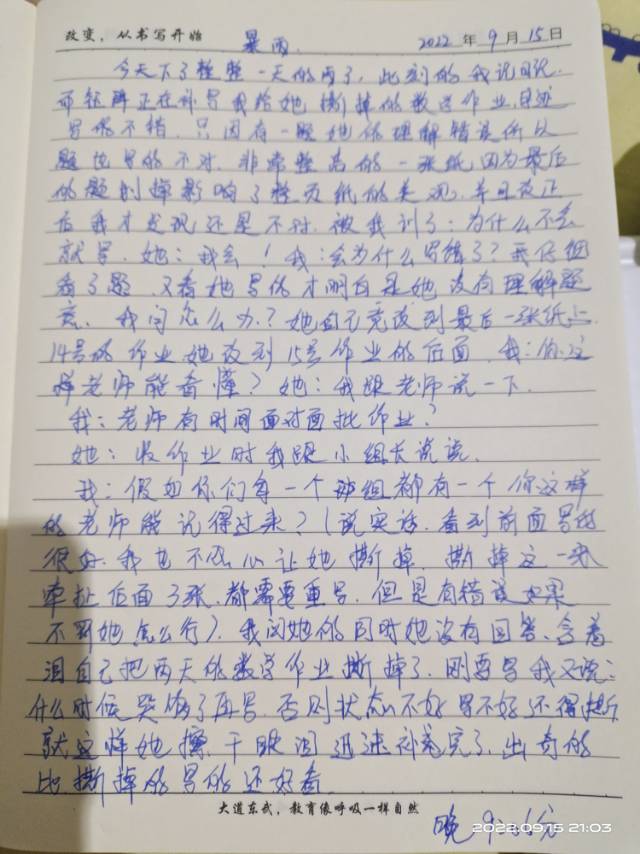 改变，从书写开始
暴雨.
2022 年 9 月 15 日
今天下了整整一天的雨了，此刻的我记日记.
正在补写我给她撕掉的数学作业,
写得不错. 只因有一题她的理解错误所以
题也写的不对. 非常整洁的一张纸因为最后
的题 掉影响了整页纸的美观, 并且改正
后我才发现还是不对. 被我训了: 为什么不会
就写. 她: 我会! 我: 会为什么写错了? 我仔细
看了题. 又看她写的才明白是她没有理解题
意. 我问怎么办? 她自己竟改到最后一张纸上.
14号的作业她改到15号作业的后面. 我: 你这
样老师能看懂? 她: 我跟老师说一下.
我: 老师有时间面对面批作业?
她: 收作业时我跟小组长说说.
我: 假如你们每一个班组都有一个你这样
的老师能记得过来? (说实话. 看到前面写的
很好. 我也不忍心让她撕掉. 撕掉这一张
牵扯后面3张. 都需要重写. 但是有错误如果
不罚她怎么行). 我问她的同时她没有回答. 含着
泪自己把两天的数学作业撕掉了. 刚要写我又说:
什么时候哭够了再写. 否则状态不好写不好还得撕.
就这样她擦干眼泪迅速补充完了. 出奇的
比撕掉的写的还好看.
大道东武，教育像呼吸一样自然
晚 9: 分
2022.09.15 21:03